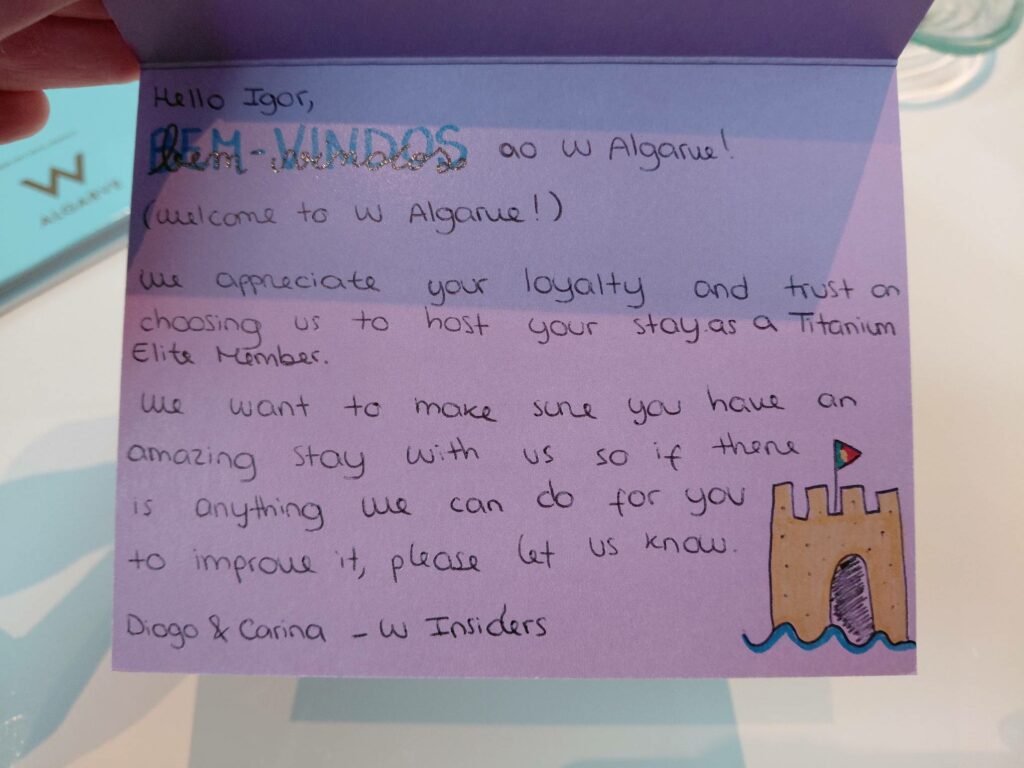 Hello Igor,
BEM-VINDOS
bem-vindos ao W Algarve!
(Welcome to W Algarve!)
We appreciate your loyalty and trust on
choosing us to host your stay.as a Titanium
Elite Member.
We want to make sure you have an
amazing stay with us so if there
is anything we can do for you
to improve it, please let us know.
Diogo & Carina - W Insiders
W
ALGARVE